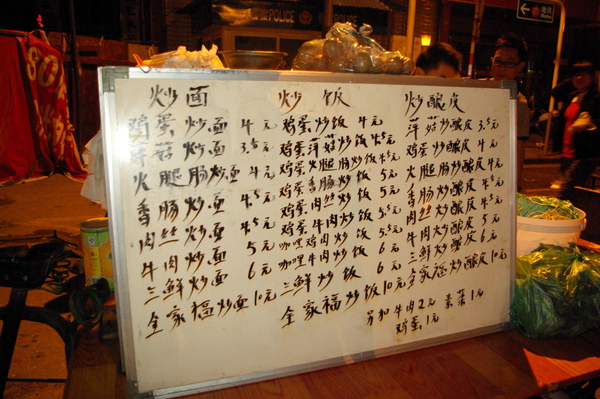 炒面
鸡蛋炒面 4元
萍菇炒面 3.5元
火腿肠炒面 4元
香肠炒面 4.5元
肉丝炒面 4.5元
牛肉炒面 5元
三鲜炒面 6元
全家福炒面 10元
炒饭
鸡蛋炒饭 4元
鸡蛋萍菇炒饭 4.5元
鸡蛋火腿肠炒饭 4.5元
鸡蛋香肠炒饭 5元
鸡蛋肉丝炒饭 5元
鸡蛋牛肉炒饭 5.5元
咖哩鸡肉炒饭 5.5元
咖哩牛肉炒饭 6元
三鲜炒饭 6元
全家福炒饭 10元
炒酿皮
萍菇炒酿皮 3.5元
鸡蛋炒酿皮 4元
火腿肠炒酿皮 4元
香肠炒酿皮 4.5元
肉丝炒酿皮 4.5元
牛肉炒酿皮 5元
三鲜炒酿皮 6元
全家福炒酿皮 10元
另加牛肉2元 素菜1元
鸡蛋1元
POLICE